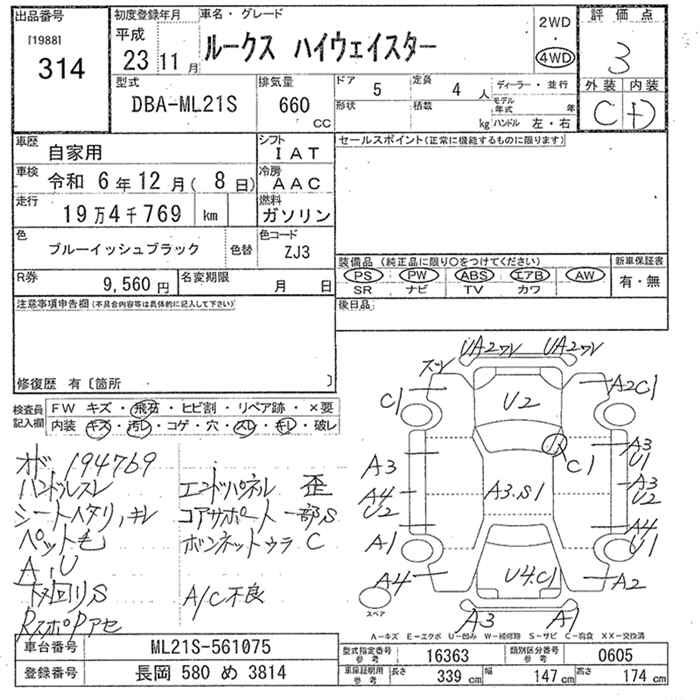 出品番号
[1988]
314
初度登録年月
平成
23 11月
車名・グレード
ルークス ハイウェイスター
2WD
・
4WD
評価点
3
外装 内装
C D
型式
DBA-ML21S
排気量
660
CC
ドア 5
定員 4人
形状
積載 kg
ディーラー・並行
モデル年式 年
ハンドル 左・右
車歴
自家用
シフト
IAT
車検
令和 6年 12月( 8日)
冷房
AAC
走行
19万4千769 km
燃料
ガソリン
色
ブルーイッシュブラック
色替
色コード
ZJ3
R券
9,560円
名変期限
月 日
セールスポイント(正常に機能するものに限ります)
装備品 (純正品に限り〇をつけてください)
PS PW ABS エアB AW
SR ナビ TV カワ
新車保証書
有・無
後日品
注意事項申告欄(不具合内容等は具体的に記入して下さい)
修復歴 有〔箇所 〕
検査員記入欄
FW キズ・飛石・ヒビ割・リペア跡・×要
内装 キズ・汚レ・コゲ・穴・スレ・キレ・破レ
オド 194769
ハンドルスレ
シートヘタリ,キレ
ペット毛
A,U
下回りS
RスポPアセ
エンドパネル 歪
コアサポート 一部S
ボンネットウラ C
A/C不良
UA2ワレ UA2ワレ
スレ
C1
A2C1
U2
C1
A3
A3
U1
A4
U2
A3.S1
A3
U2
A1
A4
U1
A4
U4.C1
A2
A3
A1
スペア
A－キズ E－エクボ U－凹み W－補修跡 S－サビ C－腐食 XX－交換済
車台番号
ML21S-561075
登録番号
長岡 580 め 3814
型式指定番号
参考
16363
類別区分番号
参考
0605
車庫証明用
参考
長さ 339 cm
幅 147 cm
高さ 174 cm